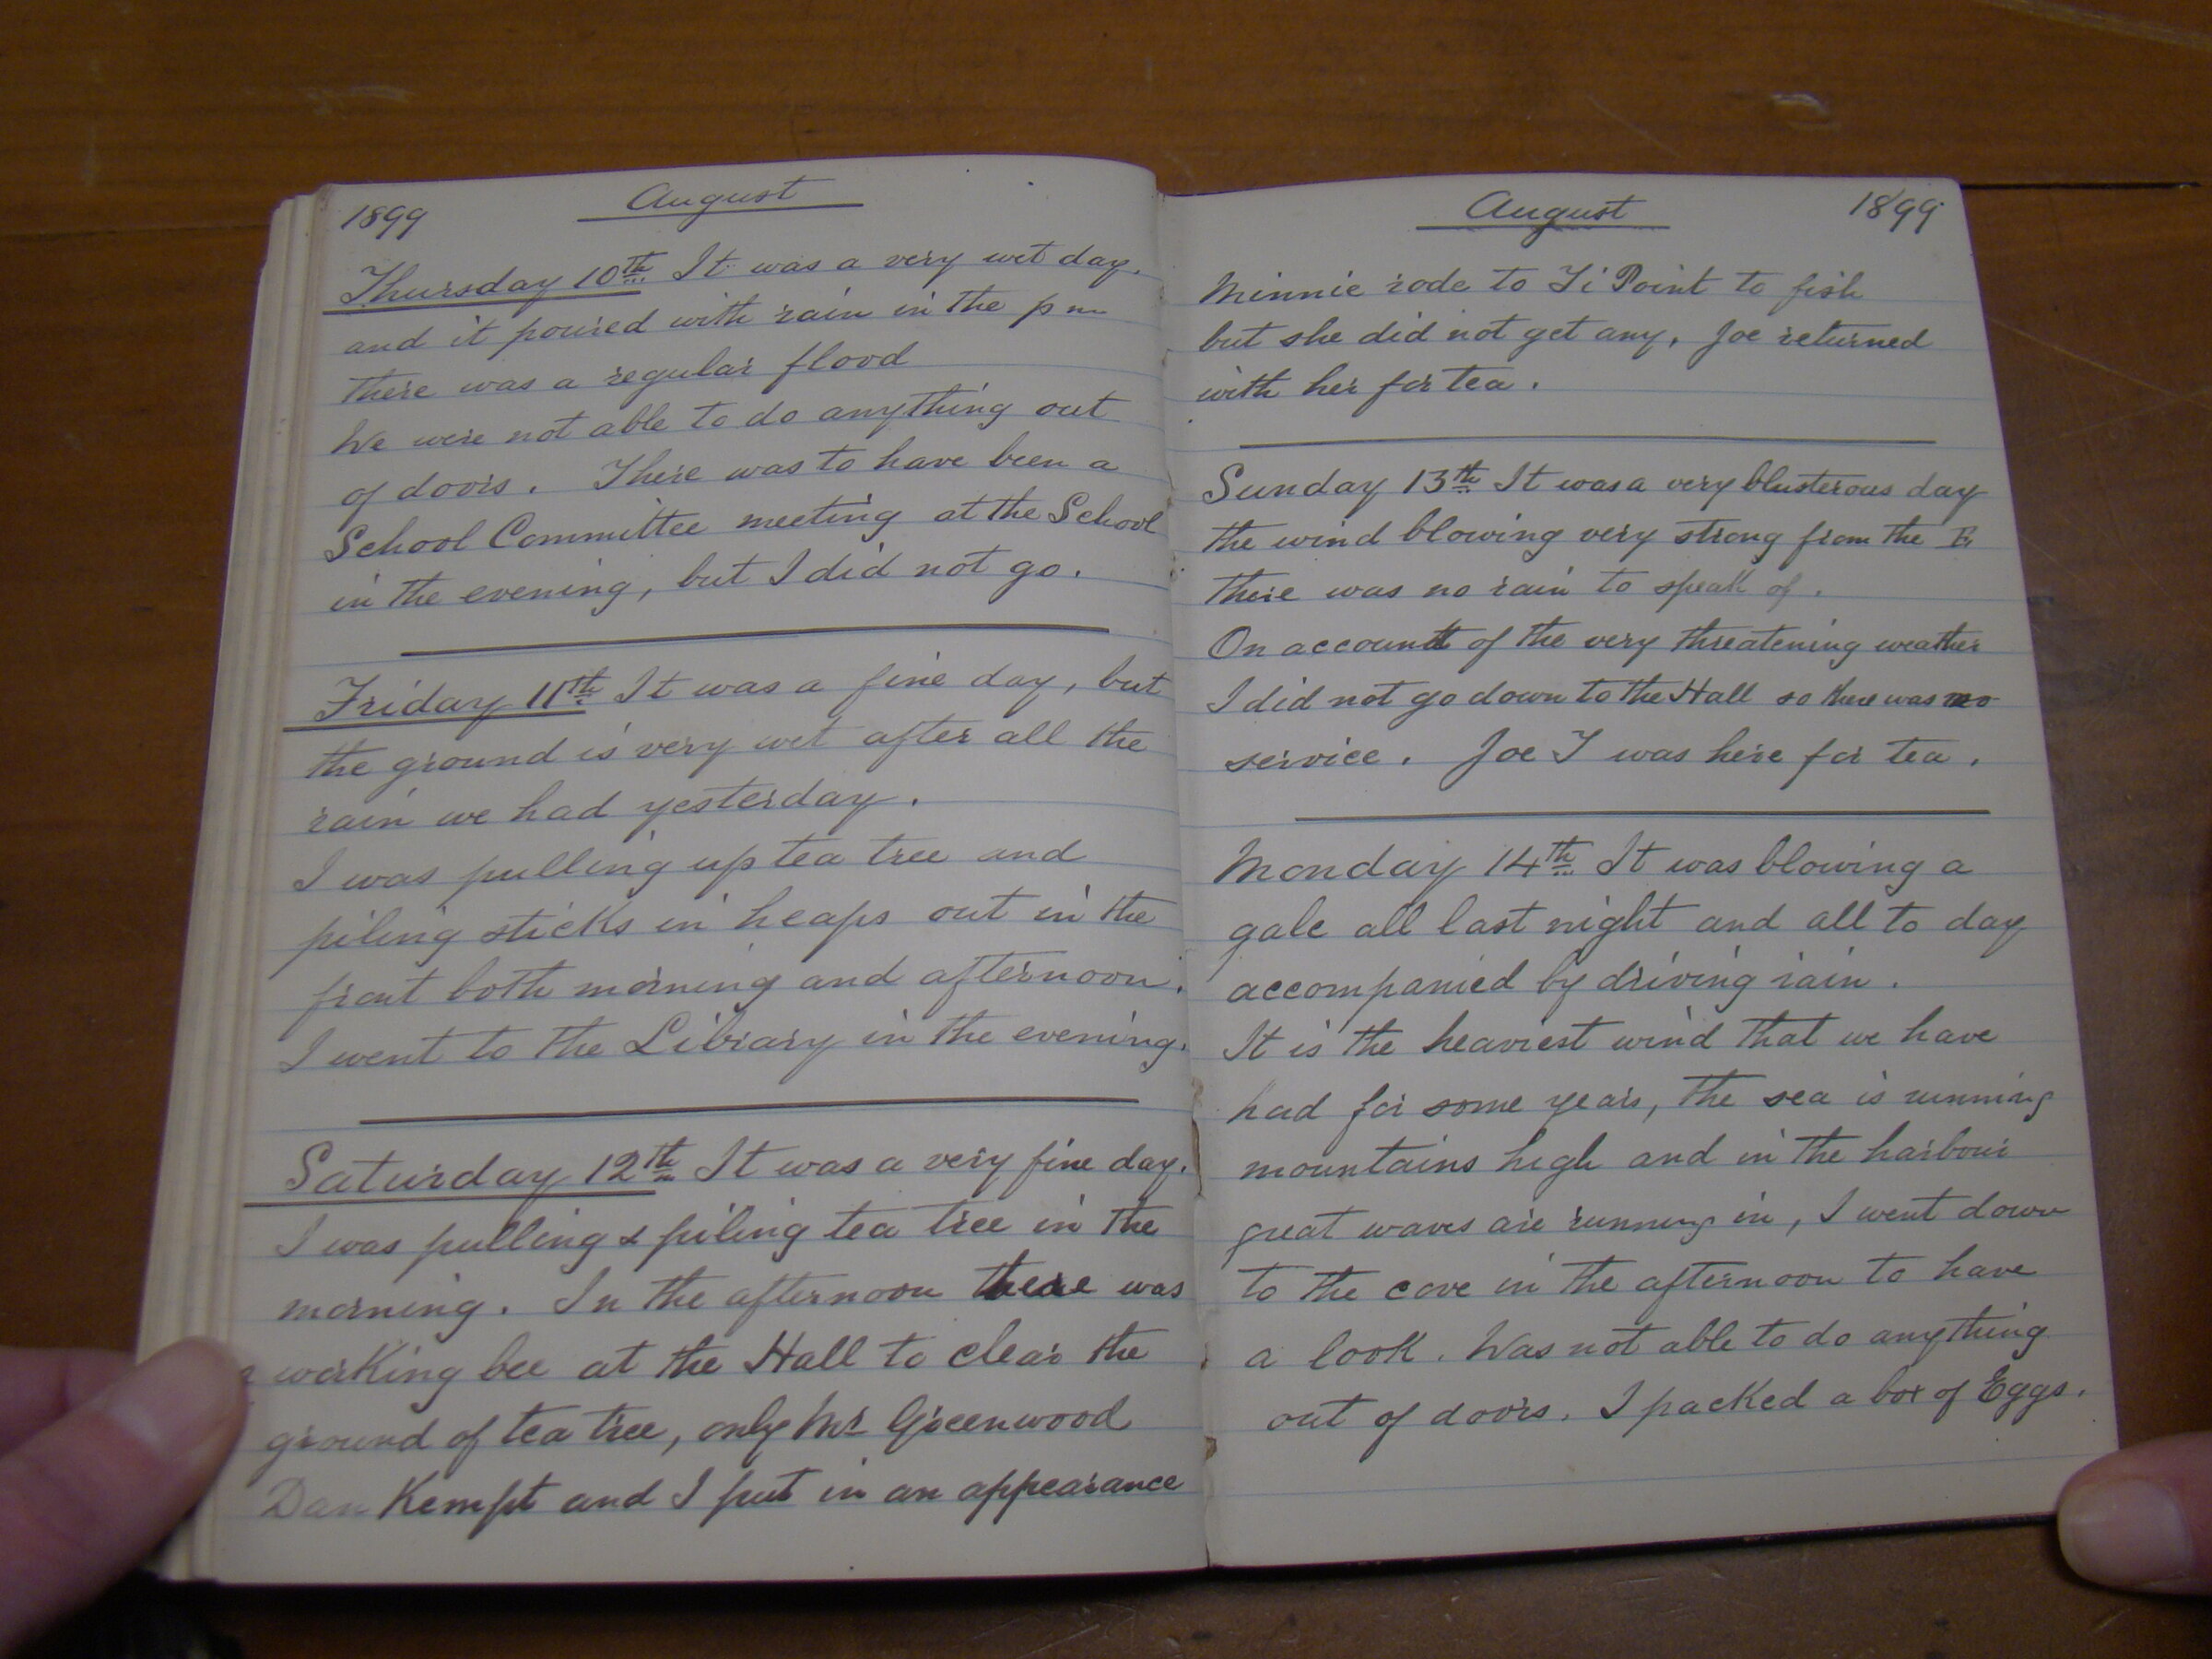 1899
August
Thursday 10th It was a very wet day.
and it poured with rain in the pm
there was a regular flood
We were not able to do anything out
of doors. There was to have been a
School Committee meeting at the School
in the evening, but I did not go.
Friday 11th It was a fine day, but
the ground is very wet after all the
rain we had yesterday.
I was pulling up tea tree and
piling sticks in heaps out in the
front both morning and afternoon.
I went to the Library in the evening.
Saturday 12th It was a very fine day.
I was pulling & piling tea tree in the
morning. In the afternoon there was
a working bee at the Hall to clear the
ground of tea tree, only Mr Greenwood
Dan Kempt and I put in an appearance
August
1899
Minnie rode to Ti Point to fish
but she did not get any, Joe returned
with her for tea.
Sunday 13th It was a very blusterous day
the wind blowing very strong from the E
there was no rain to speak of.
On account of the very threatening weather
I did not go down to the Hall so there was no
service. Joe T was here for tea.
Monday 14th It was blowing a
gale all last night and all to day
accompanied by driving rain.
It is the heaviest wind that we have
had for some years, the sea is running
mountains high and in the harbour
great waves are running in, I went down
to the cove in the afternoon to have
a look. Was not able to do anything
out of doors. I packed a box of Eggs.